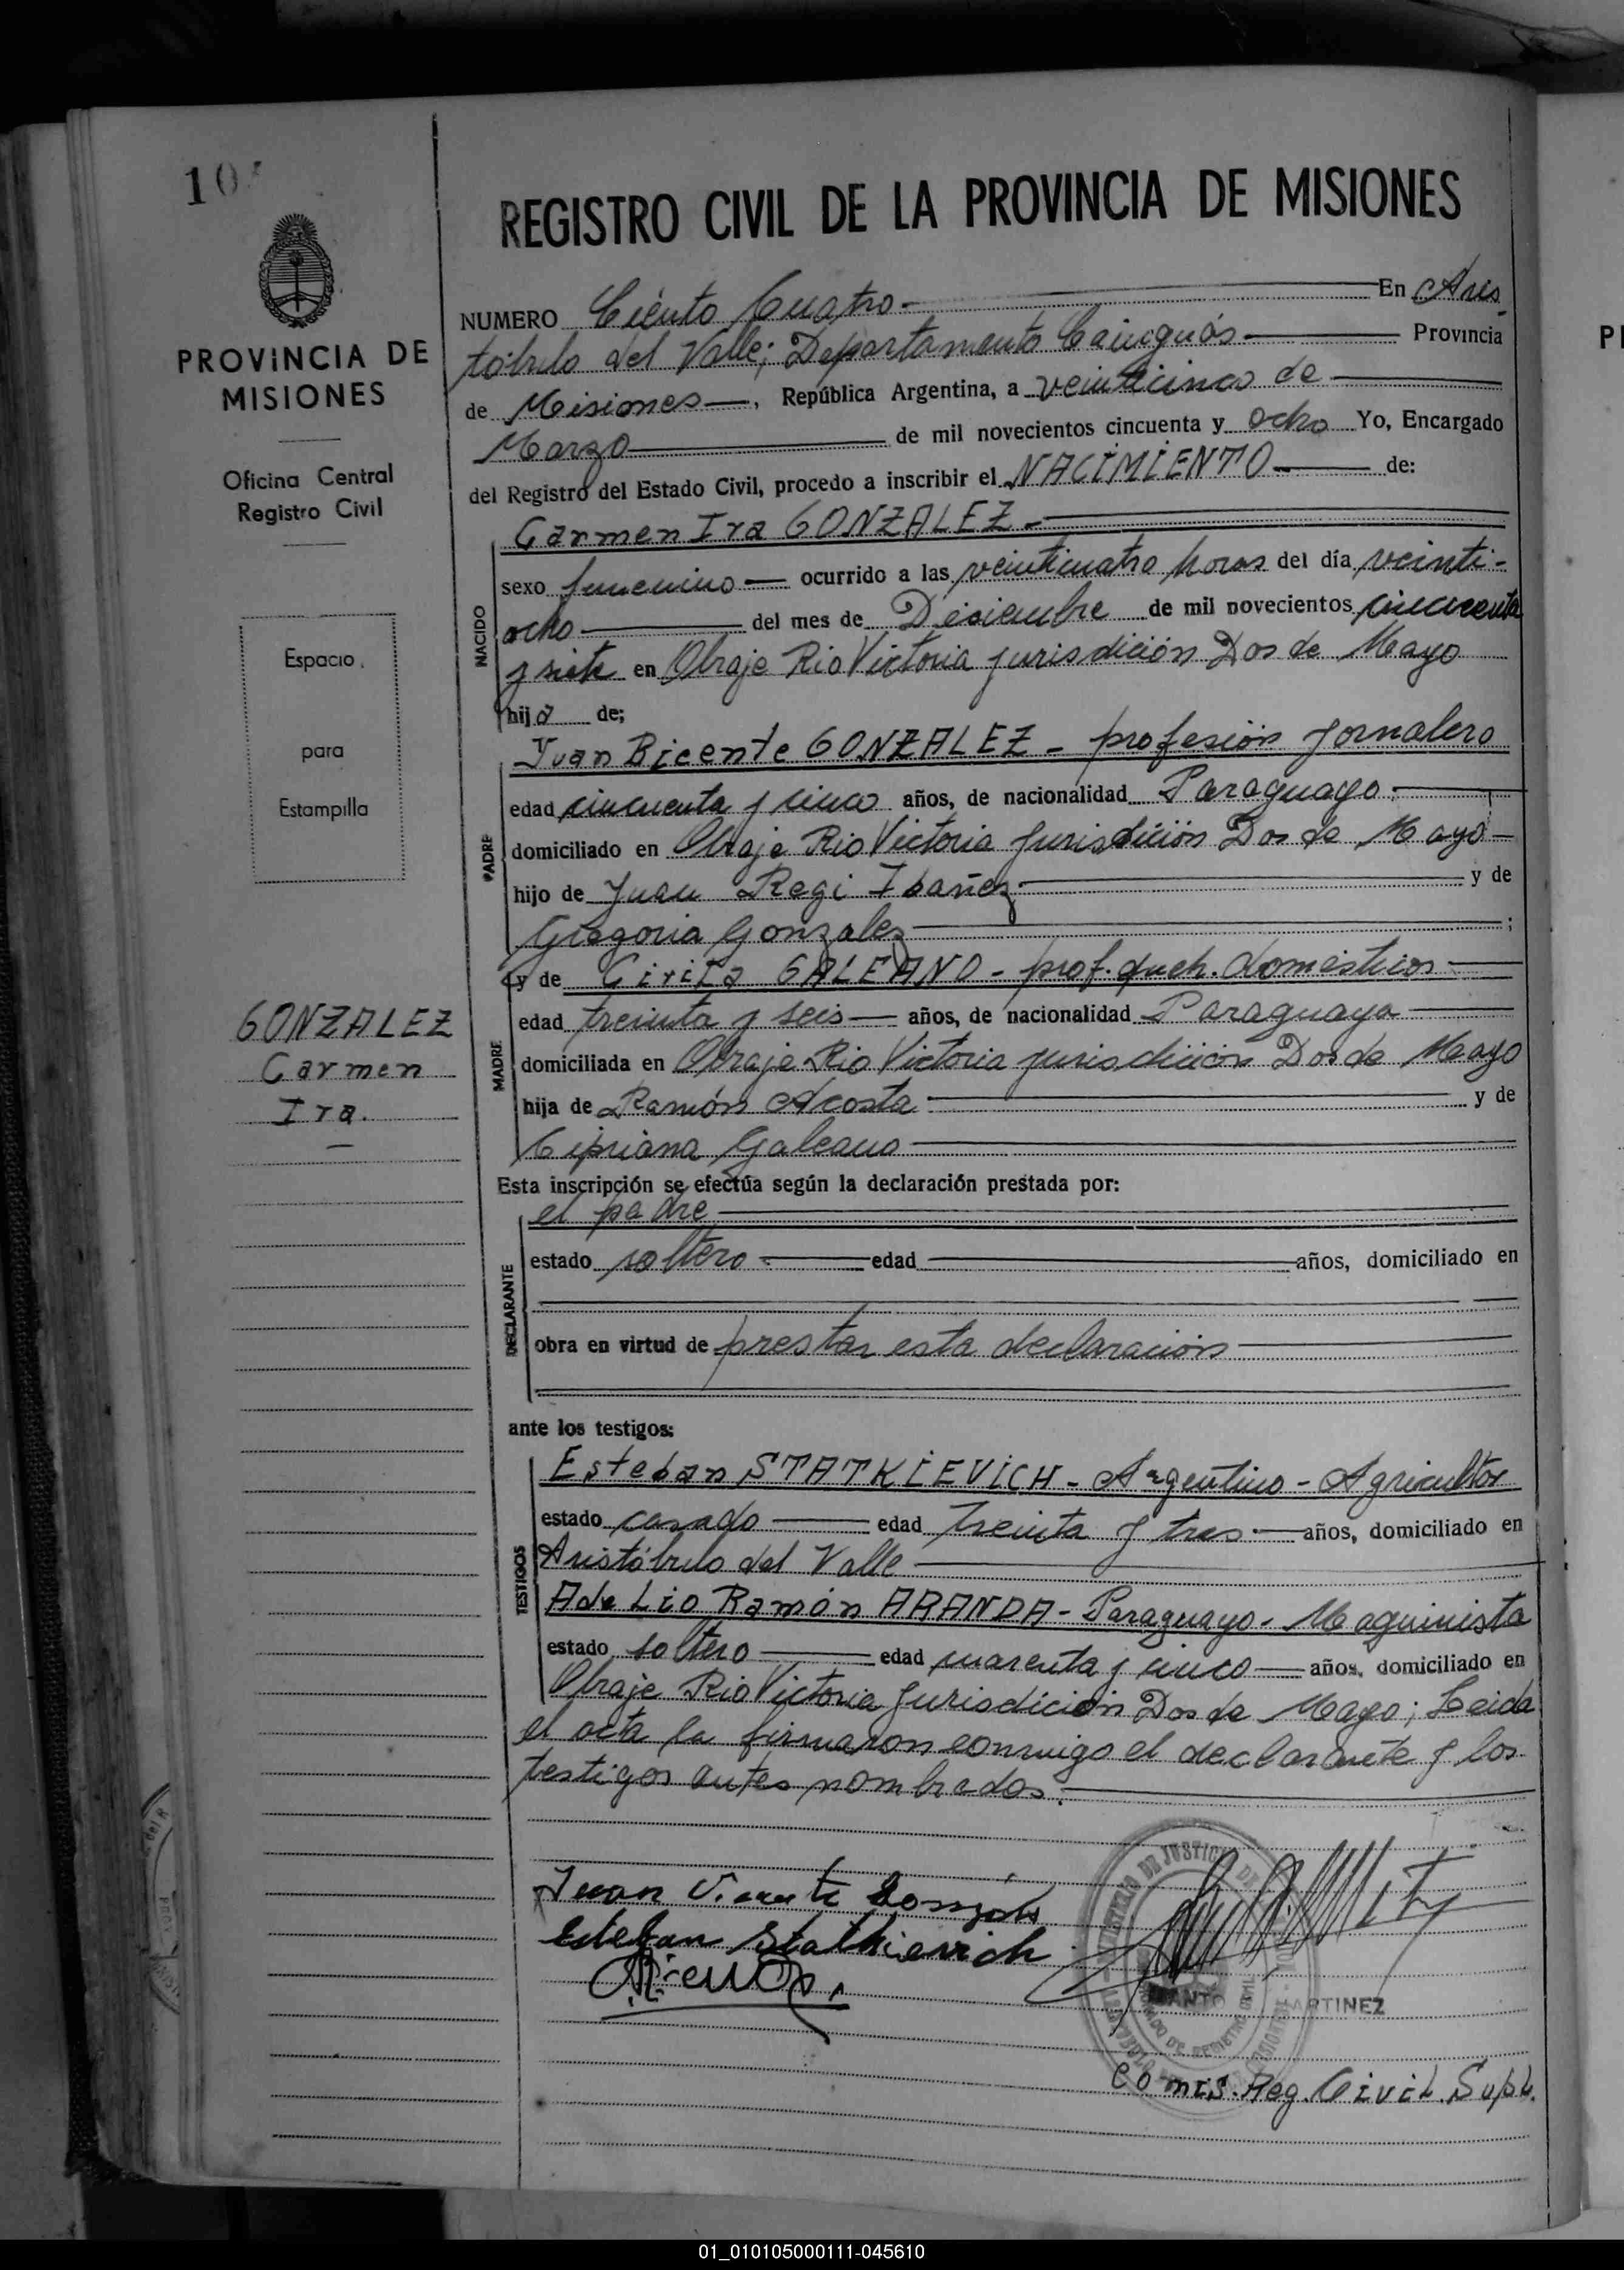 10
REGISTRO CIVIL DE LA PROVINCIA DE MISIONES
PROVINCIA DE
MISIONES
Oficina Central
Registro Civil
Espacio
para
Estampilla
GONZALEZ
Carmen
Ira.
NUMERO Ciento Cuatro.- En Aris
tóbulo del Valle; Departamento Cainguás Provincia
de Misiones, República Argentina, a veinticinco de
Marzo de mil novecientos cincuenta y ocho Yo, Encargado
del Registro del Estado Civil, procedo a inscribir el NACIMIENTO de:
NACIDO
Carmen Ira GONZALEZ.-
sexo femenino ocurrido a las veinticuatro horas del día veinti-
ocho del mes de Diciembre de mil novecientos cincuenta
y siete en Obraje Rio Victoria jurisdición Dos de Mayo
hija de;
PADRE
Juan Bicente GONZALEZ - profesión Jornalero
edad cincuenta y cinco años, de nacionalidad Paraguayo.
domiciliado en Obraje Rio Victoria jurisdición Dos de Mayo
hijo de Juan Regi Ibañez y de
Gregoria Gonzalez ;
MADRE
y de Cirila GALEANO - prof. queh. domésticos
edad treinta y seis años, de nacionalidad Paraguaya
domiciliada en Obraje Rio Victoria jurisdición Dos de Mayo
hija de Ramón Acosta y de
Cipriana Galeano
Esta inscripción se efectúa según la declaración prestada por:
DECLARANTE
el padre
estado soltero edad años, domiciliado en
obra en virtud de prestar esta declaración
ante los testigos:
TESTIGOS
Esteban STATKIEVICH - Argentino - Agricultor
estado casado edad treinta y tres años, domiciliado en
Aristóbulo del Valle
Adelio Ramón ARANDA - Paraguayo - Maquinista
estado soltero edad cuarenta y cinco años, domiciliado en
Obraje Rio Victoria Jurisdición Dos de Mayo; Leida
el acta la firmaron conmigo el declarante y los
testigos antes nombrados.
Juan Vicente Gonzales
Esteban Statkievich
MINISTERIO DE JUSTICIA
ARTINEZ
Comis. Reg. Civil. Supl.
01_010105000111-045610